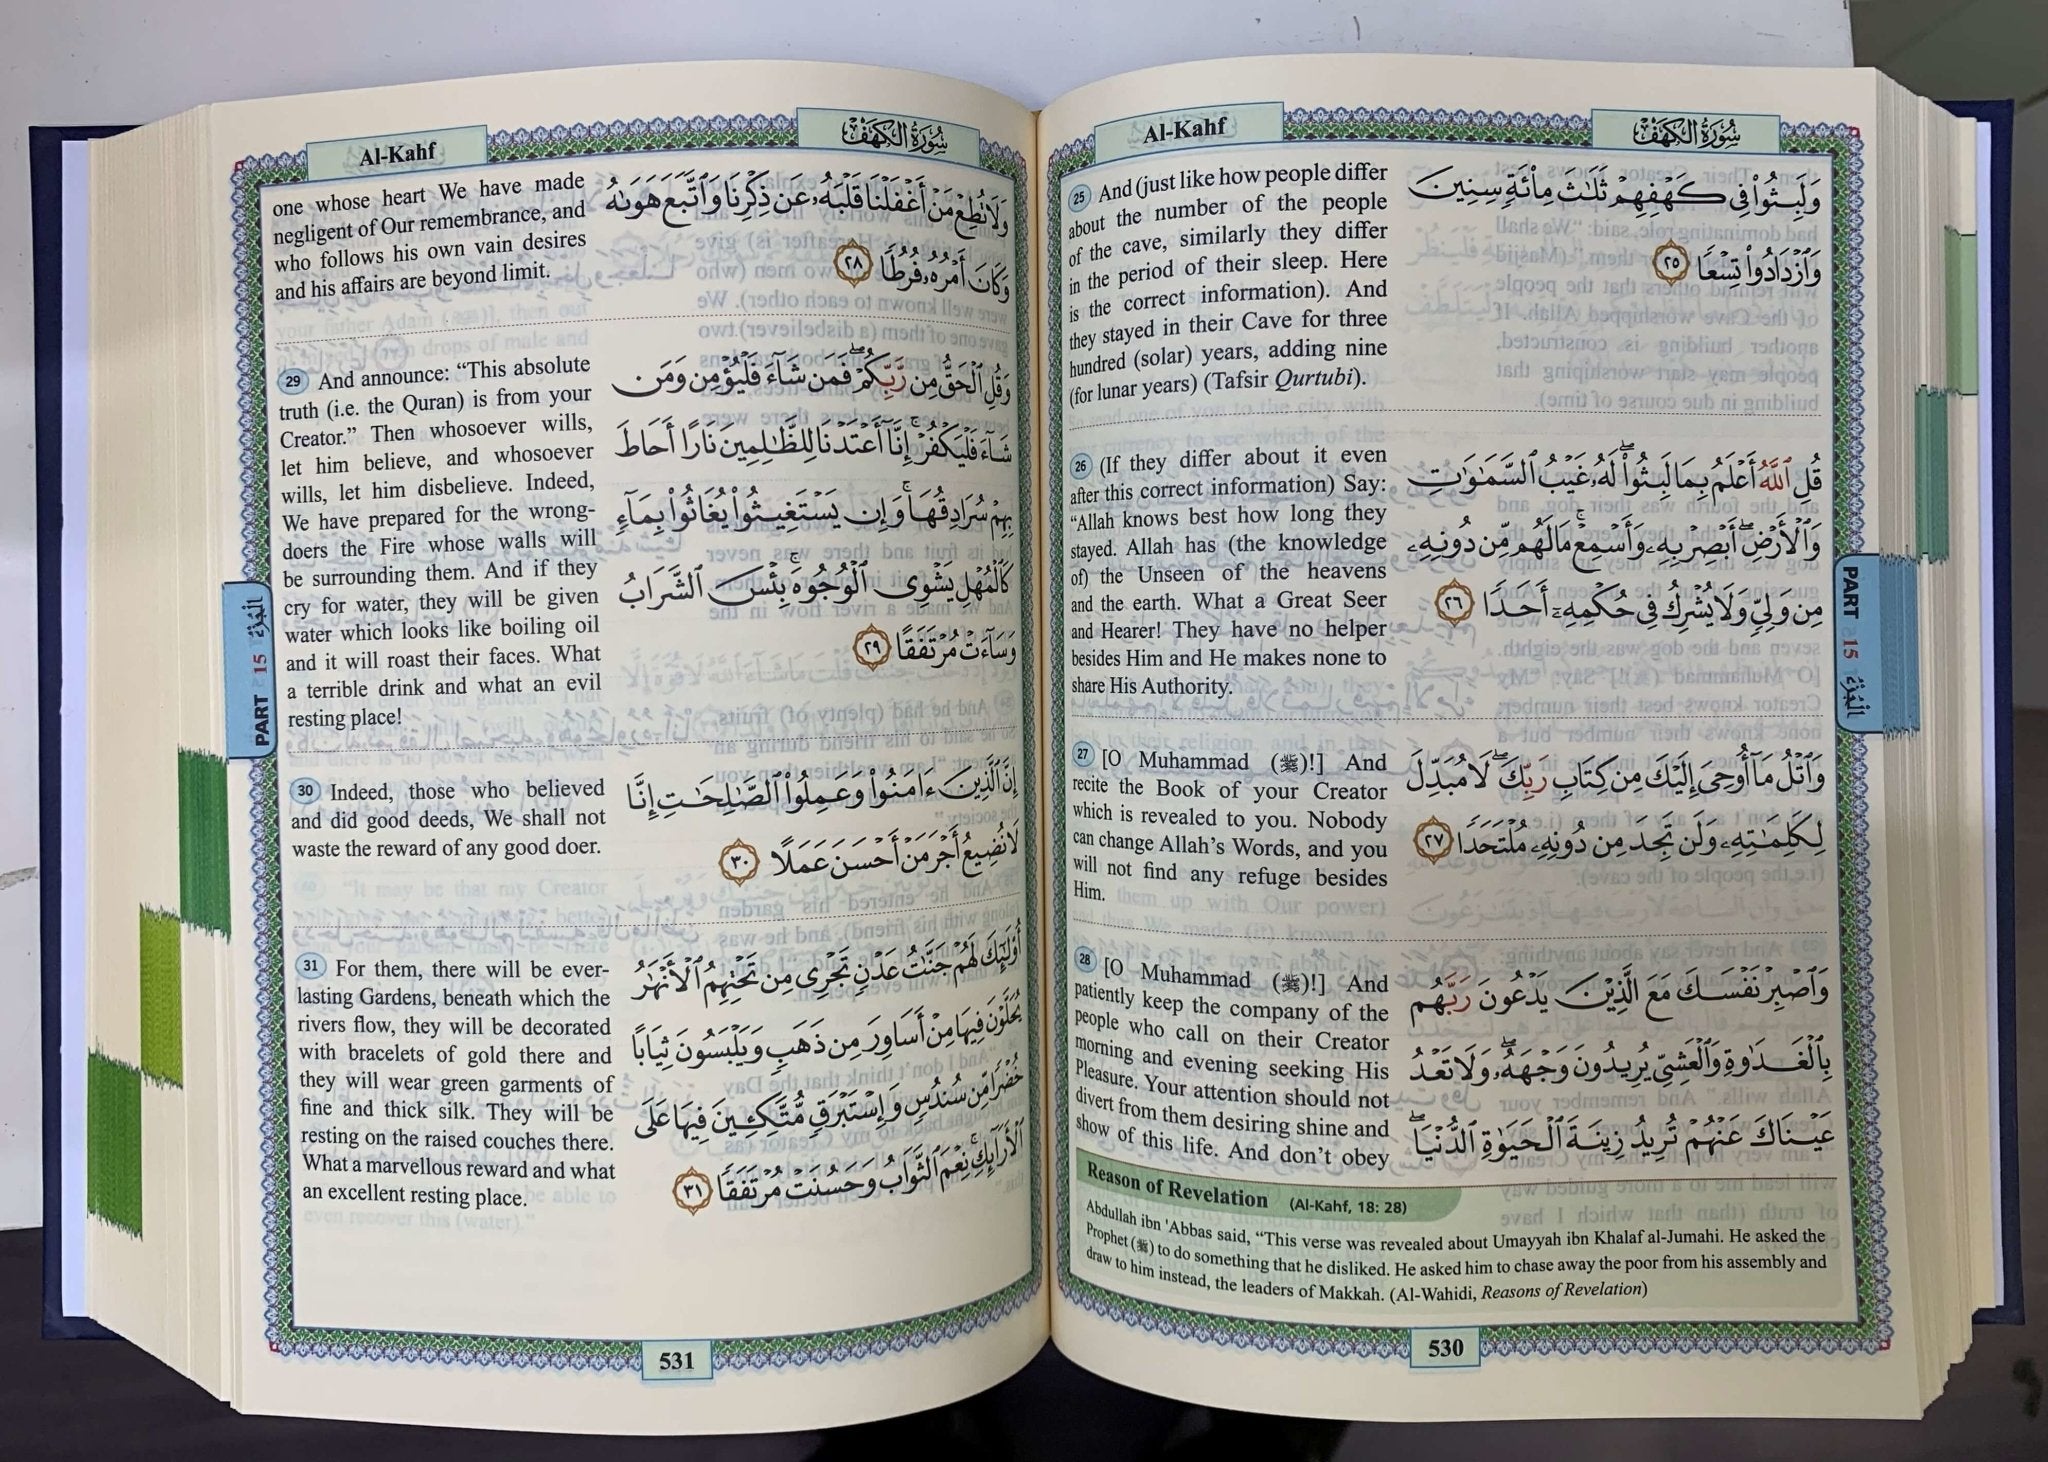 Al-Kahf
سُورَةُ الكَهْفِ
25 And (just like how people differ
about the number of the people
of the cave, similarly they differ
in the period of their sleep. Here
is the correct information). And
they stayed in their Cave for three
hundred (solar) years, adding nine
(for lunar years) (Tafsir Qurtubi).
وَلَبِثُوا۟ فِى كَهْفِهِمْ ثَلَٰثَ مِا۟ئَةٍ سِنِينَ
وَٱزْدَادُوا۟ تِسْعًا ٢٥
26 (If they differ about it even
after this correct information) Say:
“Allah knows best how long they
stayed. Allah has (the knowledge
of) the Unseen of the heavens
and the earth. What a Great Seer
and Hearer! They have no helper
besides Him and He makes none to
share His Authority.
قُلِ ٱللَّهُ أَعْلَمُ بِمَا لَبِثُوا۟ ۖ لَهُۥ غَيْبُ ٱلسَّمَٰوَٰتِ
وَٱلْأَرْضِ ۖ أَبْصِرْ بِهِۦ وَأَسْمِعْ ۚ مَا لَهُم مِّن دُونِهِۦ
مِن وَلِىٍّ وَلَا يُشْرِكُ فِى حُكْمِهِۦٓ أَحَدًا ٢٦
27 [O Muhammad (ﷺ)!] And
recite the Book of your Creator
which is revealed to you. Nobody
can change Allah’s Words, and you
will not find any refuge besides
Him.
وَٱتْلُ مَآ أُوحِىَ إِلَيْكَ مِن كِتَابِ رَبِّكَ ۖ لَا مُبَدِّلَ
لِكَلِمَٰتِهِۦ وَلَن تَجِدَ مِن دُونِهِۦ مُلْتَحَدًا ٢٧
28 [O Muhammad (ﷺ)!] And
patiently keep the company of the
people who call on their Creator
morning and evening seeking His
Pleasure. Your attention should not
divert from them desiring shine and
show of this life. And don’t obey
وَٱصْبِرْ نَفْسَكَ مَعَ ٱلَّذِينَ يَدْعُونَ رَبَّهُم
بِٱلْغَدَوٰةِ وَٱلْعَشِىِّ يُرِيدُونَ وَجْهَهُۥ ۖ وَلَا تَعْدُ
عَيْنَاكَ عَنْهُمْ تُرِيدُ زِينَةَ ٱلْحَيَوٰةِ ٱلدُّنْيَا ۖ
Reason of Revelation (Al-Kahf, 18: 28)
Abdullah ibn 'Abbas said, “This verse was revealed about Umayyah ibn Khalaf al-Jumahi. He asked the
Prophet (ﷺ) to do something that he disliked. He asked him to chase away the poor from his assembly and
draw to him instead, the leaders of Makkah. (Al-Wahidi, Reasons of Revelation)
530
PART 15 الجُزْءُ
Al-Kahf
سُورَةُ الكَهْفِ
one whose heart We have made
negligent of Our remembrance, and
who follows his own vain desires
and his affairs are beyond limit.
وَلَا تُطِعْ مَنْ أَغْفَلْنَا قَلْبَهُۥ عَن ذِكْرِنَا وَٱتَّبَعَ هَوَىٰهُ
وَكَانَ أَمْرُهُۥ فُرُطًا ٢٨
29 And announce: “This absolute
truth (i.e. the Quran) is from your
Creator.” Then whosoever wills,
let him believe, and whosoever
wills, let him disbelieve. Indeed,
We have prepared for the wrong-
doers the Fire whose walls will
be surrounding them. And if they
cry for water, they will be given
water which looks like boiling oil
and it will roast their faces. What
a terrible drink and what an evil
resting place!
وَقُلِ ٱلْحَقُّ مِن رَّبِّكُمْ ۖ فَمَن شَآءَ فَلْيُؤْمِن وَمَن
شَآءَ فَلْيَكْفُرْ ۚ إِنَّآ أَعْتَدْنَا لِلظَّٰلِمِينَ نَارًا أَحَاطَ
بِهِمْ سُرَادِقُهَا ۚ وَإِن يَسْتَغِيثُوا۟ يُغَاثُوا۟ بِمَآءٍ
كَٱلْمُهْلِ يَشْوِى ٱلْوُجُوهَ ۚ بِئْسَ ٱلشَّرَابُ
وَسَآءَتْ مُرْتَفَقًا ٢٩
30 Indeed, those who believed
and did good deeds, We shall not
waste the reward of any good doer.
إِنَّ ٱلَّذِينَ ءَامَنُوا۟ وَعَمِلُوا۟ ٱلصَّٰلِحَٰتِ إِنَّا
لَا نُضِيعُ أَجْرَ مَنْ أَحْسَنَ عَمَلًا ٣٠
31 For them, there will be ever-
lasting Gardens, beneath which the
rivers flow, they will be decorated
with bracelets of gold there and
they will wear green garments of
fine and thick silk. They will be
resting on the raised couches there.
What a marvellous reward and what
an excellent resting place.
أُو۟لَٰٓئِكَ لَهُمْ جَنَّٰتُ عَدْنٍ تَجْرِى مِن تَحْتِهِمُ ٱلْأَنْهَٰرُ
يُحَلَّوْنَ فِيهَا مِنْ أَسَاوِرَ مِن ذَهَبٍ وَيَلْبَسُونَ ثِيَابًا
خُضْرًا مِّن سُندُسٍ وَإِسْتَبْرَقٍ مُّتَّكِـِٔينَ فِيهَا عَلَى
ٱلْأَرَآئِكِ ۚ نِعْمَ ٱلثَّوَابُ وَحَسُنَتْ مُرْتَفَقًا ٣١
531
PART 15 الجُزْءُ